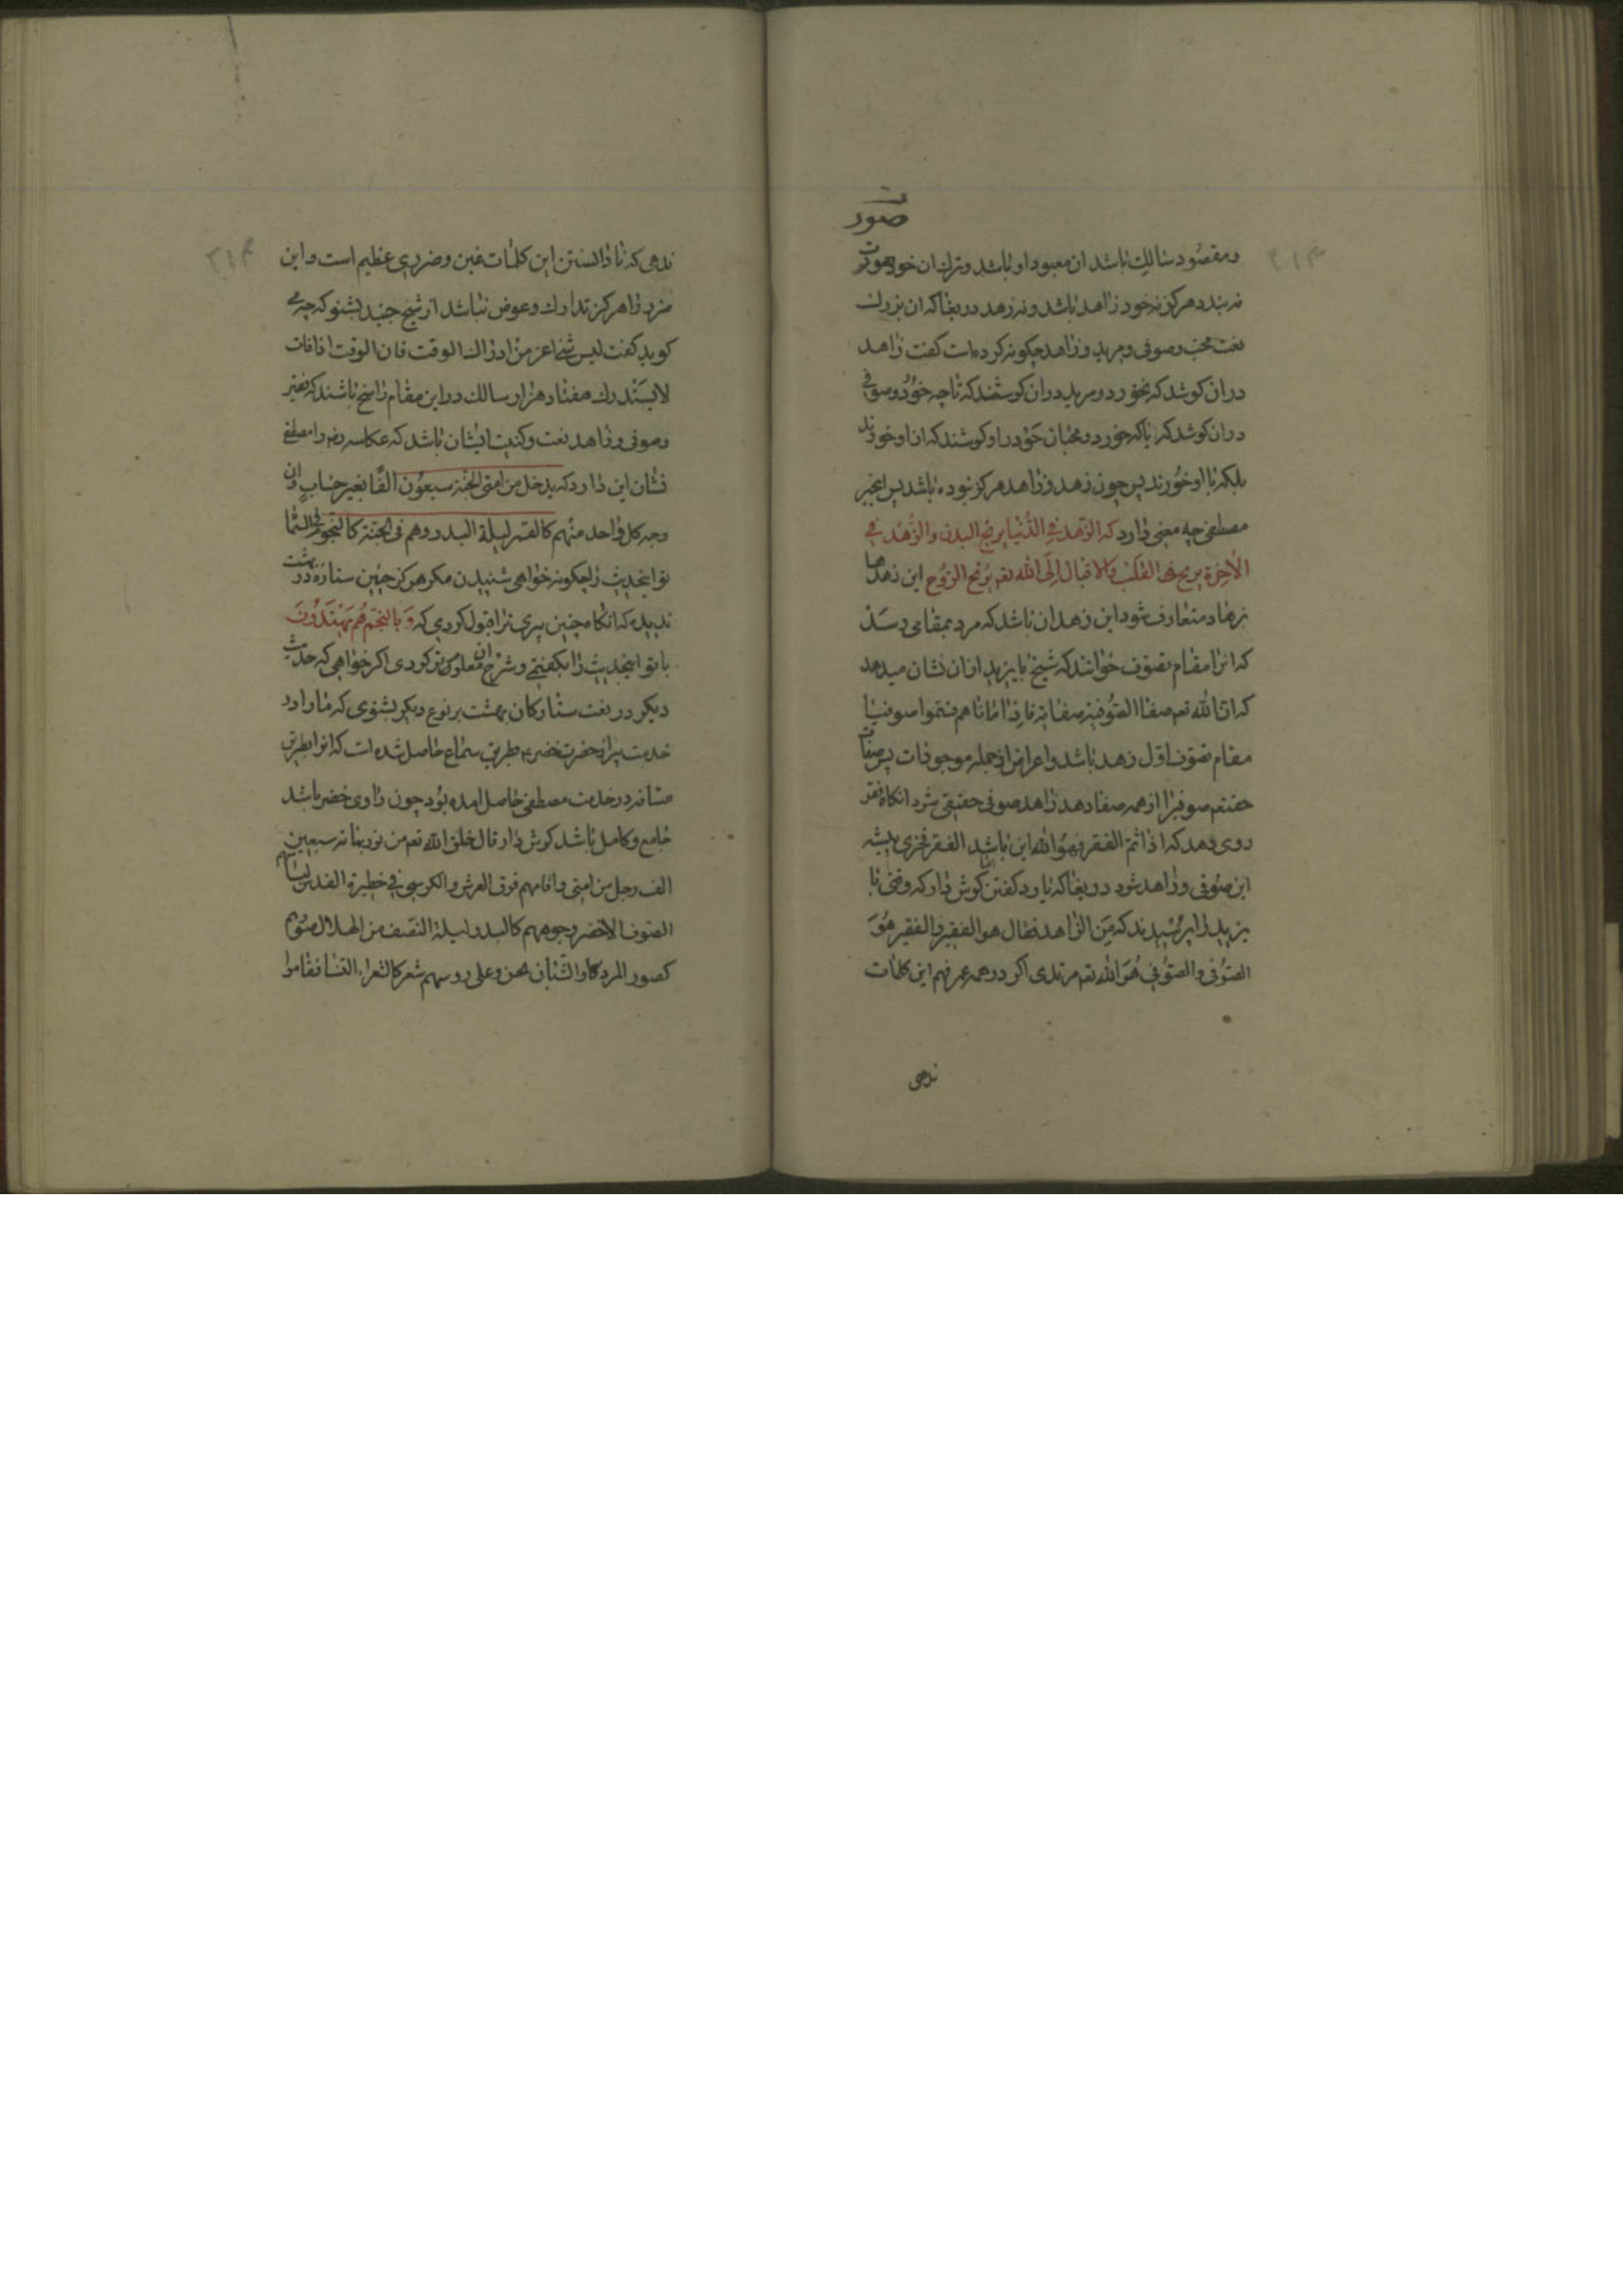 صورت
و مقصود سالك باشد ان معبود او باشد و ترك ان خود صورت
نه بندد هركز نه خود زاهد باشد و نه زهد دريغا كه ان بزرك
نعت محب و صوفى و مريد و زاهد چكونه كرده است كفت زاهد
دران كوشد كه نخورد و مريد دران كوشند كه تا چه خورد و صوفى
دران كوشد كه با كه خورد و محبان خود در او كوشند كه از او خورند
بلكه با او خورند پس چون زهد و زاهد هركز نبوده باشد پس اين خبر
مصطفى چه معنى دارد كه الزّهد فى الدُّنيا يريح البدن والزُّهد فى
الآخرة يريح القلب والاقبال الى الله تعم يريح الرّوح اين زهدها
بزهاد متعارف شود اين زهد ان باشد كه مرد بمقامى رسد
كه انرا مقام تصوّف خوانند كه شيخ بايزيد از ان نشان ميدهد
كه ان الله تعم صفا الصّوفية صفاته فاذا صافاهم فسمّوا صوفيا
مقام تصوف اول زهد باشد و اعراض از جمله موجودات پس صفات
حقتعم صوفيرا از همه صفا دهد زاهد صوفى حقيقى شود انكاه فقر
روى دهد كه اذا تمّ الفقر فهو الله اين باشد الفقر فخرى پيشه
اين صوفى و زاهد شود دريغا كه يارد كفتن اما كوش دار كه وقتى با
يزيد را پرسيدند كه من الزّاهد فقال هو الفقير والفقير هُوَ
الصّوفى والصّوفى هُوَ الله تعم مرتدى اكر در همه عمر فهم اين كلمات
ندهى
ندهى كه نادانستن اين كلمات غبن و ضررى عظيم است و اين
مرد را هركز تدارك و عوض نباشد از شيخ جنيد بشنو كه چه مى
كويد كفت ليس شئ اعز من ادراك الوقت فان الوقت اذا فات
لا يستدرك هفتاد هزار سالك در اين مقام راسخ باشند كه فقير
و صوفى و زاهد نعت و كنيت ايشان باشد كه عكاسه رض را مصطفى
نشان اين دارد كه يدخل من امتى الجنّة سبعون الفًا بغير حساب و ان
وجه كل واحد منهم كالقمر ليلة البدر و هم فى الجنّة كالنجوم فى السّما
تو اينحديث را چكونه خواهى شنيدن مكر هركز چنين ستاره در بهشت
نديده كه انكاه چنين پيرى ترا قبول كردى كه وَبِالنَّجمِ هُم يَهتَدُونَ
با تو اينحديث را بكفتى و شرح ان معلوم تو كردى اكر خواهى كه حديث
ديكر در نعت ستاركان بهشت بر نوع ديكر بشنوى كه ما را در
خدمت پير از حضرت خضر ع بطريق سماع حاصل شده است كه او را بطريق
مشافه در خدمت مصطفى حاصل امده بود چون راوى خضر باشد
جامع و كامل باشد كوش دار قال خلق الله تعم من نور بهائه سبعين
الف رجل من امتى واقامهم فوق العرش والكرسى فى حظيرة القدس لباسهم
الصّوف الاخضر وجوههم كالبدر ليلة النّصف من الهلال صورهم
كصور المرد كاو الشّبان نحن وعلى روسهم شعر كالشعراء النّسا فقاموا